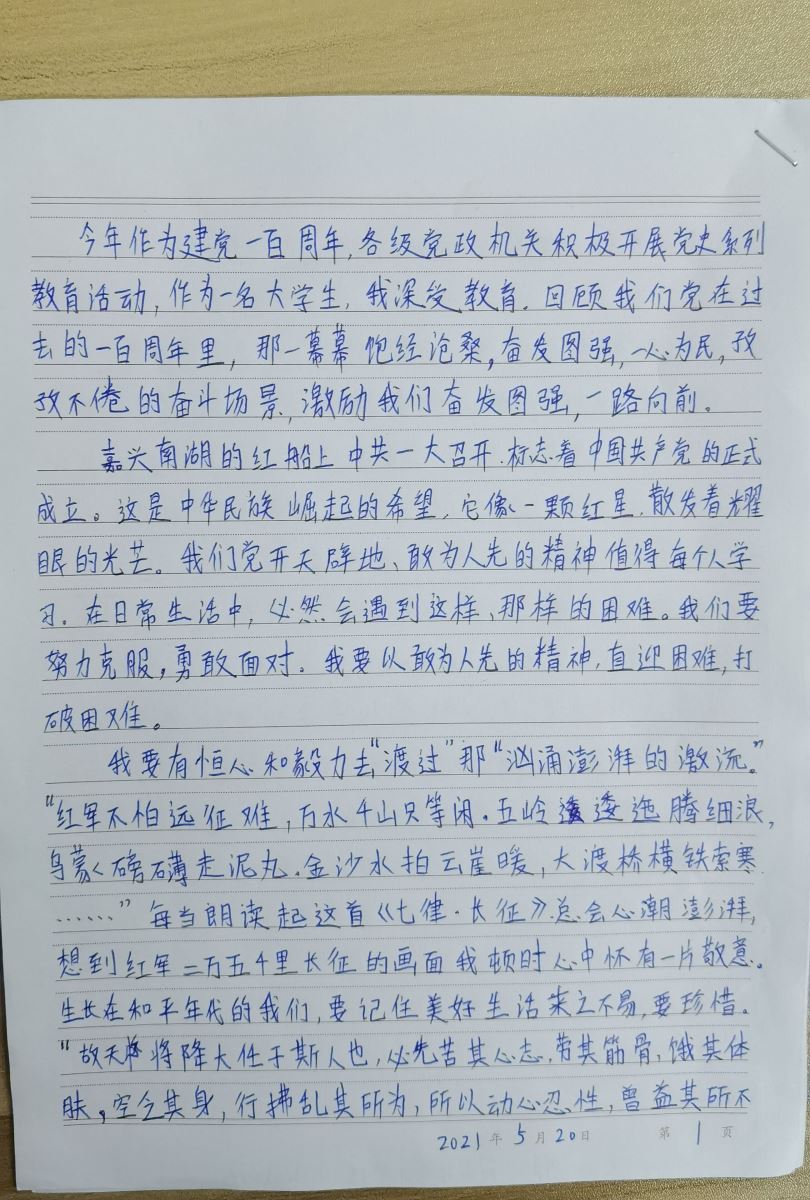 今年作为建党一百周年,各级党政机关积极开展党史系列
教育活动,作为一名大学生,我深受教育.回顾我们党在过
去的一百周年里,那一幕幕饱经沧桑,奋发图强,一心为民,孜
孜不倦的奋斗场景,激励我们奋发图强,一路向前。
嘉兴南湖的红船上中共一大召开.标志着中国共产党的正式
成立。这是中华民族崛起的希望,它像一颗红星,散发着耀
眼的光芒。我们党开天辟地、敢为人先的精神值得每个人学
习.在日常生活中,必然会遇到这样、那样的困难。我们要
努力克服,勇敢面对.我要以敢为人先的精神,直迎困难,打
破困难。
我要有恒心和毅力去“渡过”那“汹涌澎湃的激流。”
“红军不怕远征难,万水千山只等闲.五岭逶迤腾细浪,
乌蒙磅礴走泥丸.金沙水拍云崖暖,大渡桥横铁索寒
……”每当朗读起这首《七律·长征》总会心潮澎湃,
想到红军二万五千里长征的画面我顿时心中怀有一片敬意。
生长在和平年代的我们,要记住美好生活来之不易,要珍惜。
“故天将降大任于斯人也,必先苦其心志,劳其筋骨,饿其体
肤,空乏其身,行拂乱其所为,所以动心忍性,曾益其所不
2021年5月20日 第1页